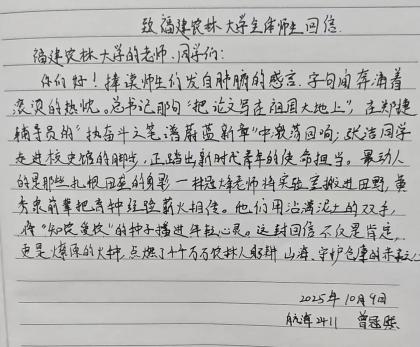 致福建农林大学全体师生回信
福建农林大学的老师、同学们:
你们好!捧读师生们发自肺腑的感言,字句间奔涌着
滚烫的热忱。总书记那句"把论文写在祖国大地上",在郑捷
辅导员的"执奋斗之笔谱蔚蓝新章"中激荡回响;张浩同学
走进校史馆的脚步,正踏出新时代青年的使命担当。最动人
的是那些扎根田垄的身影—林冠烽老师将实验室搬进田野,黄
秀泉前辈把育种经验薪火相传。他们用沾满泥土的双手,
将"知农爱农"的种子播进年轻心灵。这封回信不仅是肯定,
更是燎原的火种,点燃了千千万万农林人躬耕山海、守护仓廪的赤
2025年10月9日
航海2411 曾